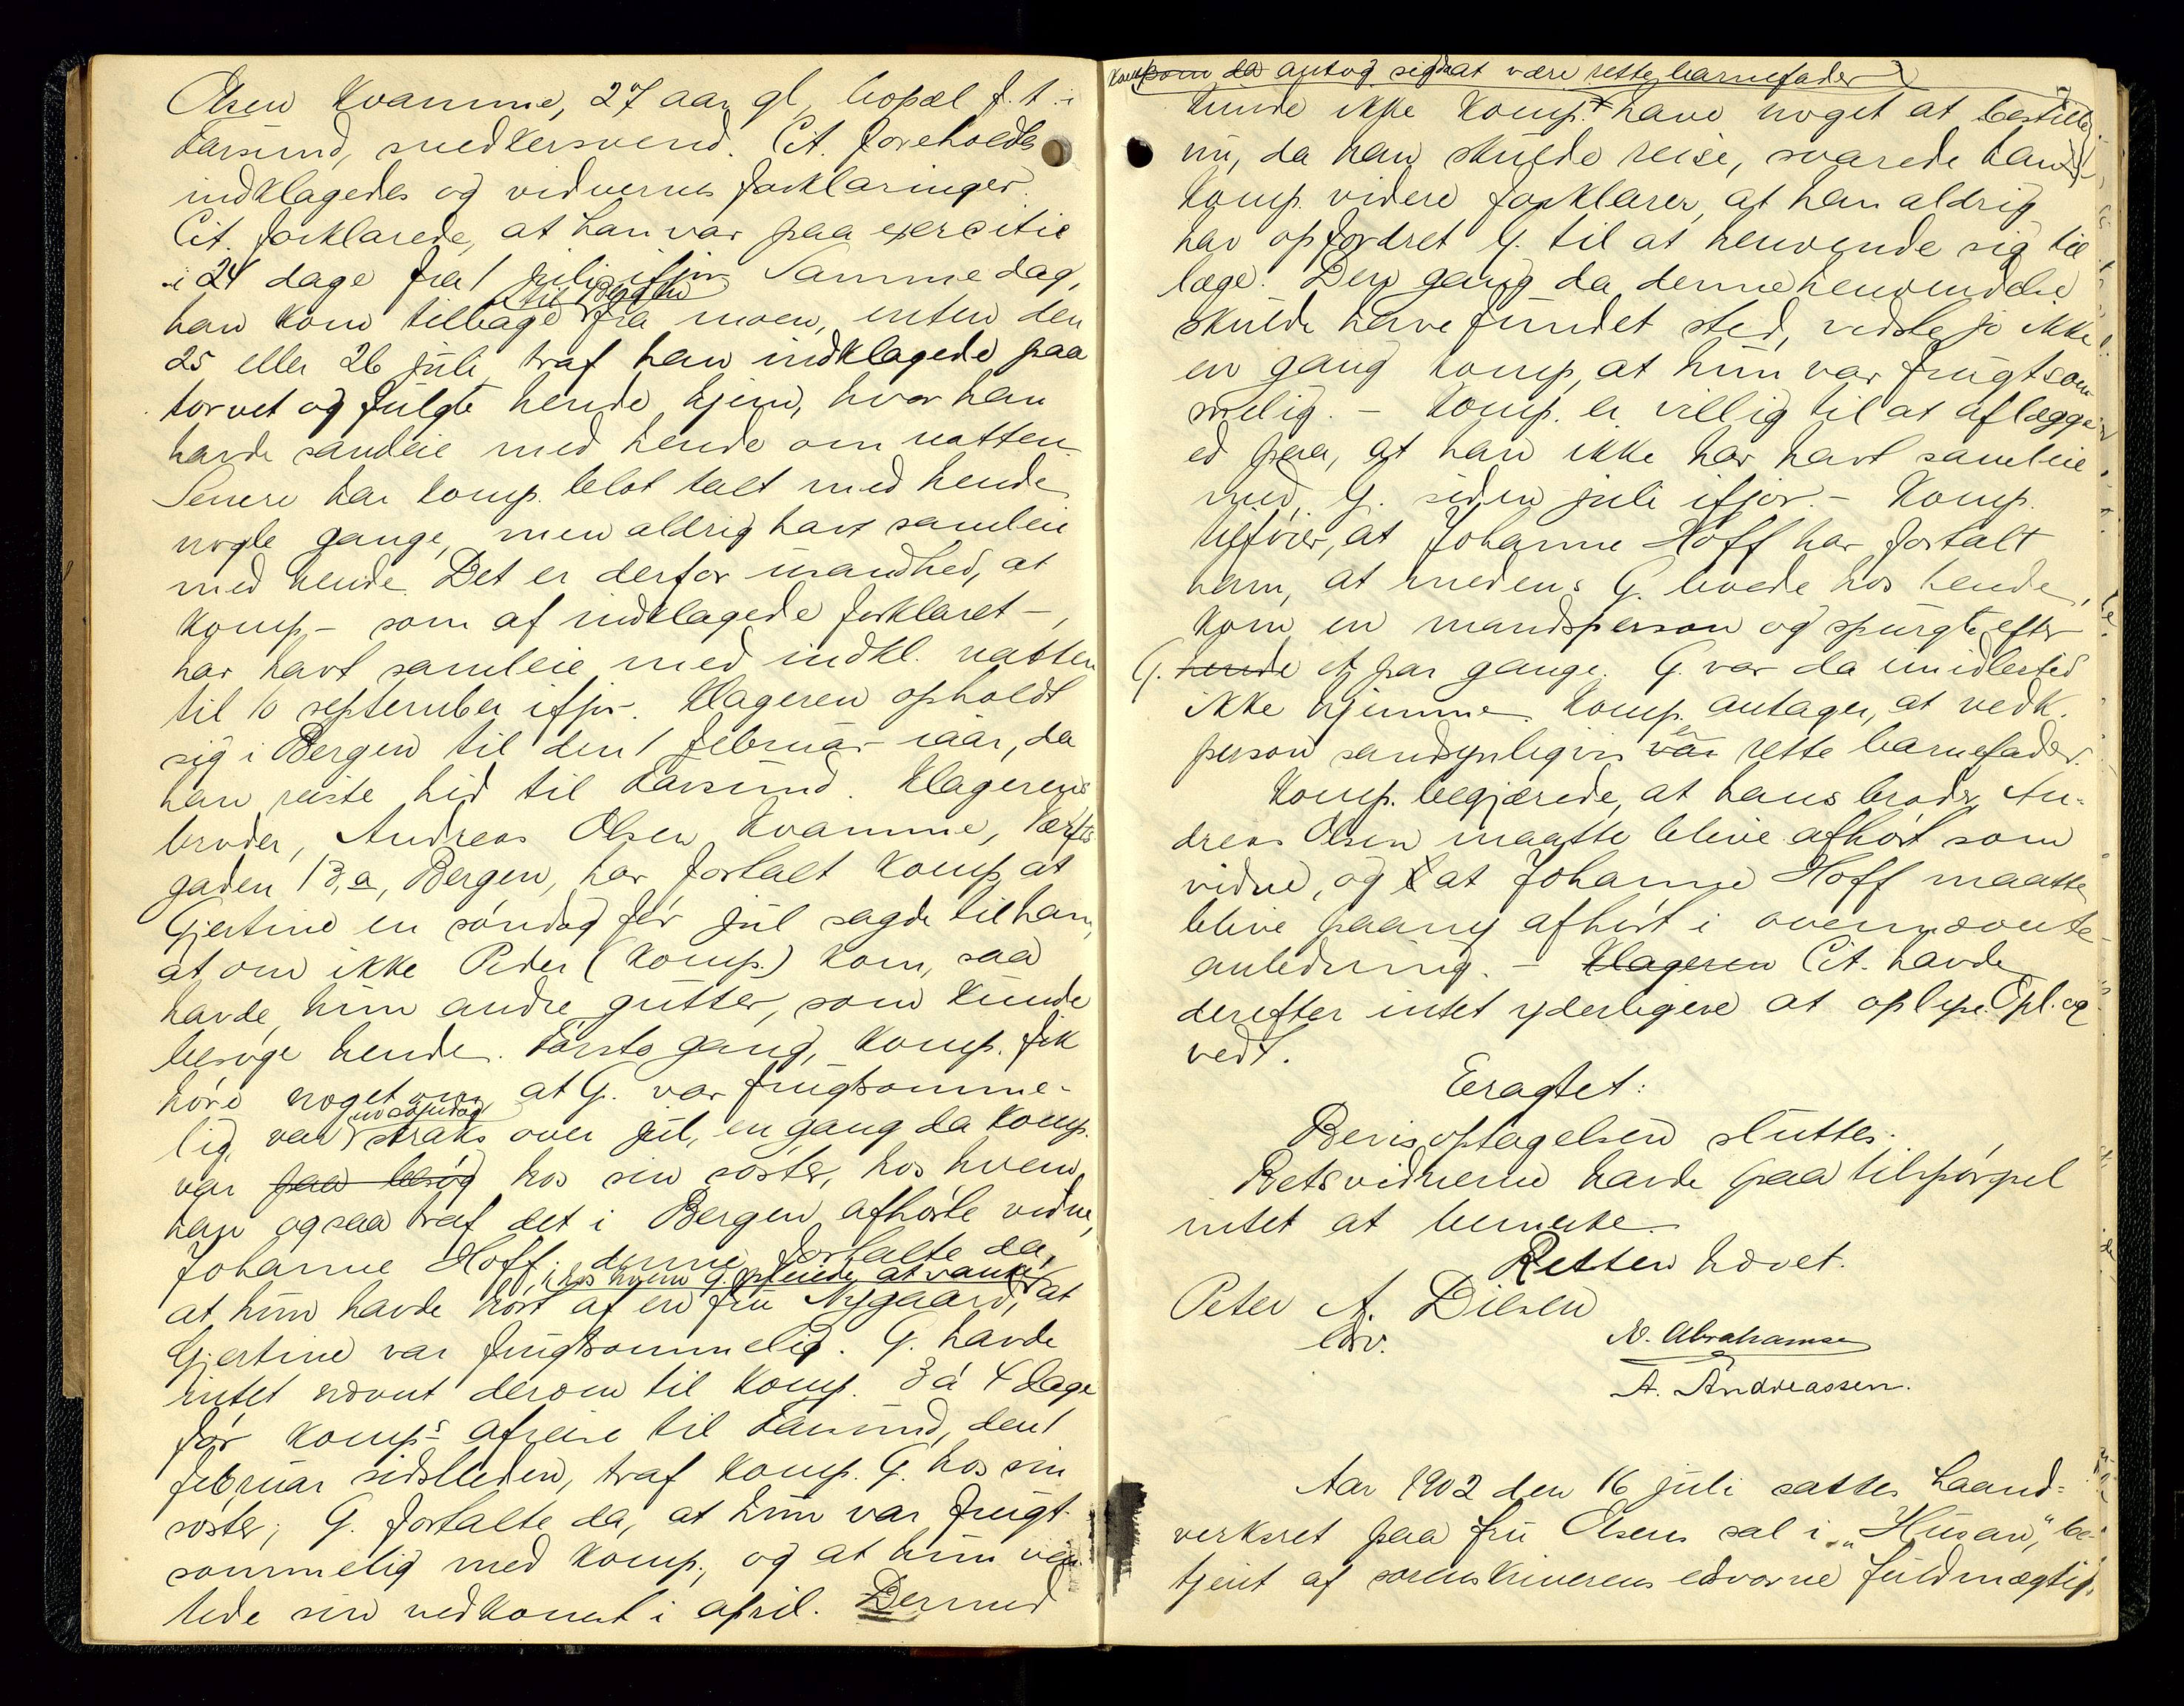 Olsen Kvamme, 27 aar gl, bopæl f. t. i
Farsund, snedkersvend. Cit. foreholdtes
indklagedes og vidnernes forklaringer.
Cit. forklarede, at han var paa exercitie
i 24 dage fra 1 juli ifjor. Samme dag,
til Bergen
han kom tilbage fra moen, enten den
25 eller 26 juli traf han indklagede paa
torvet og fulgte hende hjem, hvor han
havde samleie med hende om natten.
Senere har komp. blot talt med hende
nogle gange, men aldrig havt samleie
med hende. Det er derfor usandhed, at
komp. – som af indklagede forklaret –,
har havt samleie med indkl. natten
til 10 september ifjor. Klageren opholdt
sig i Bergen til den 1 februar iaar, da
han reiste hid til Farsund. Klagerens
broder, Andreas Olsen Kvamme,
gaden 13,a, Bergen, har fortalt komp, at
Gjertine en søndag før jul sagde til ham,
at om ikke Peder (komp.) kom, saa
havde hun andre gutter, som kunde
besøge hende. Første gang, komp. fik
høre noget om at G. var frugtsomme-
en søndag
lig, var straks over jul, en gang da komp.
var paa besøg hos sin søster, hos hvem
han ogsaa traf det i Bergen afhørte vidne,
Johanne Hoff; denne fortalte da,
hos hvem G. pleiede at vanke
at hun havde hørt af en fru Nygaard, at
Gjertine var frugtsommelig. G. havde
intet nævnt derom til komp. 3 á 4 dage
før komp.s afreise til Farsund, den 1
februar sidstleden, traf komp. G. hos sin
søster; G. fortalte da, at hun var frugt-
sommelig med komp., og at hun ven-
tede sin nedkomst i april. Dermed
komp som da antog sig at være rette barnefader
kunde ikke komp. have noget at bestille
nu, da han skulde reise, svarede han.
Komp. videre forklarer, at han aldrig
har opfordret G. til at henvende sig til
læge. Den gang da denne henvendelse
skulde have fundet sted, vidste jo ikke
en gang komp, at hun var frugtsom-
melig. – Komp. er villig til at aflægge
ed paa, at han ikke har havt samleie
med G. siden juli ifjor. – Komp.
tilføier, at Johanne Hoff har fortalt
ham, at medens G. boede hos hende,
kom en mandsperson og spurgte efter
G. hende et par gange. G. var da imidlertid
ikke hjemme. Komp. antager, at vedk.
er
person sandsynligvis var rette barnefader.
Komp. begjærede, at hans broder An-
dreas Olsen maatte blive afhørt som
vidne, og at Johanne Hoff maatte
blive paany afhørt i ovennævnte
anledning. – Klageren Cit. havde
derefter intet yderligere at oplyse. Opl. og
vedt.
Eragtet:
Bevisoptagelsen sluttes.
Retsvidnerne havde paa tilspørgsel
intet at bemerke.
Retten hævet.
Peter A. Dielen
edsv.
N. Abrahamsen
A. Andreassen.
Aar 1902 den 16 juli sattes Haand-
verksret paa fru Olsens sal i „Husan“, be-
tjent af sorenskriverens edsvorne fuldmægtig,